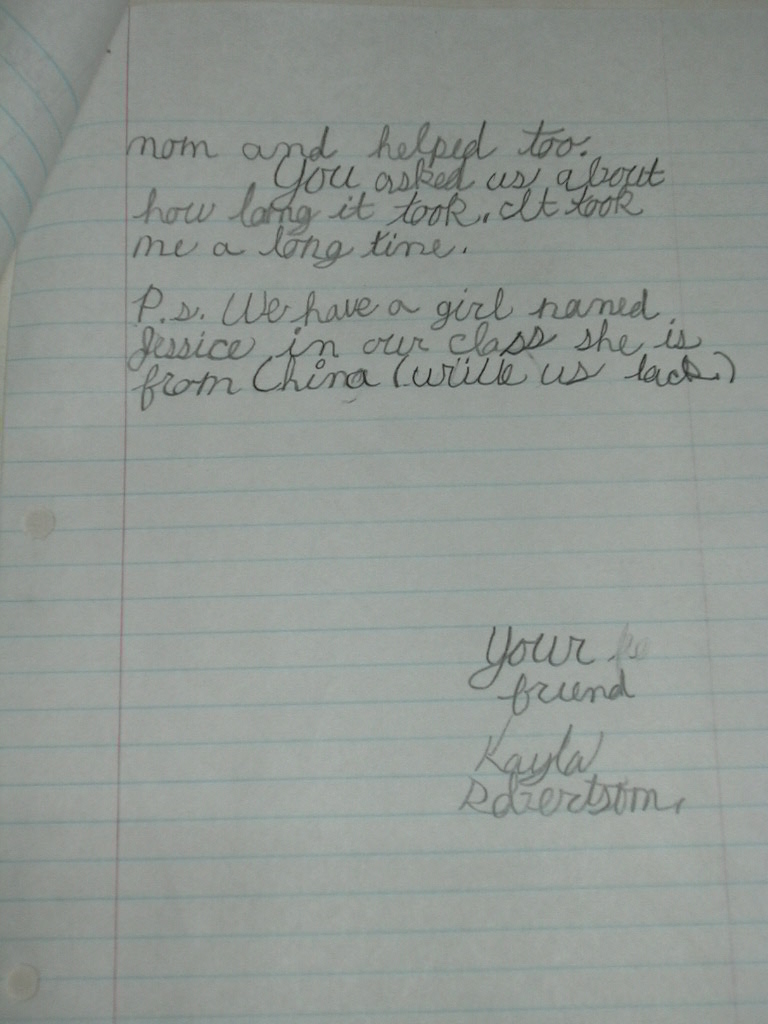 mom and helped too.
You asked us about
how long it took. It took
me a long time.
P.s. We have a girl named
Jessice in our class she is
from China (write us back)
Your
friend
Kayla
Robertson.